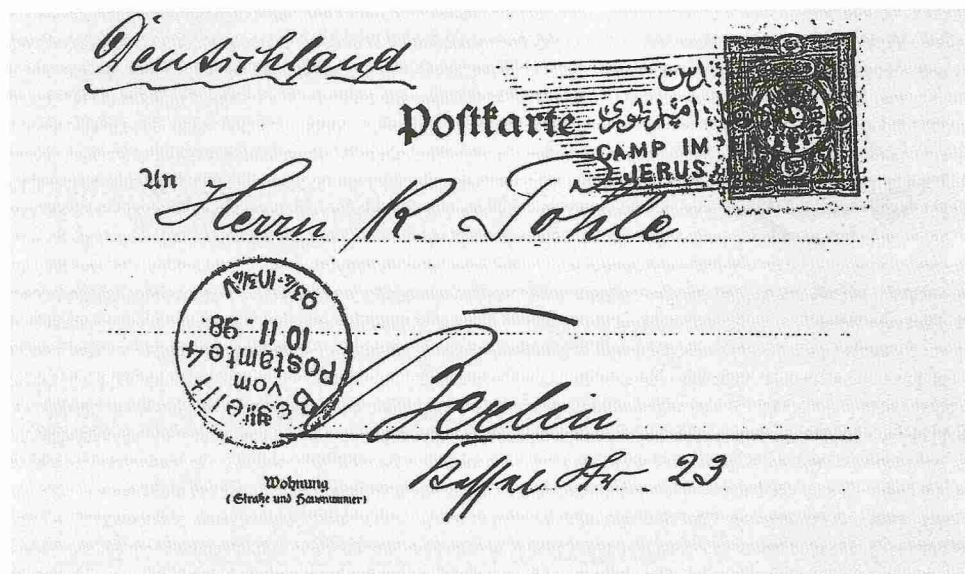 Deutschland
Postkarte
CAMP IM
JERUS.
An Herrn K. Pohle
Bestellt
vom
Postamte 4
10.11.98
9¾-10¾V
Berlin
Wohnung
(Straße und Hausnummer)
23